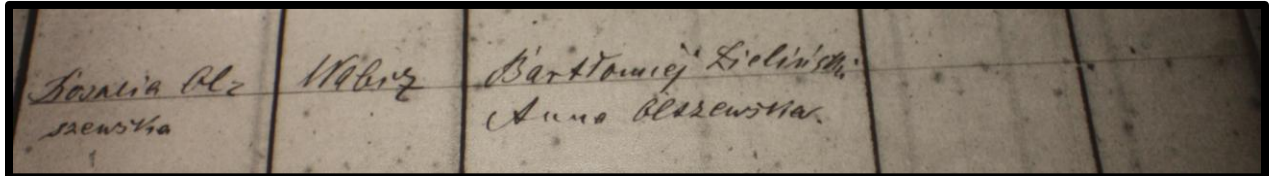 Rozalia Olszewska Wabcz Bartłomiej Zieliński
Anna Olszewska